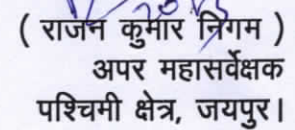 ( राजन कुमार निगम )
अपर महासर्वेक्षक
पश्चिमी क्षेत्र, जयपुर।